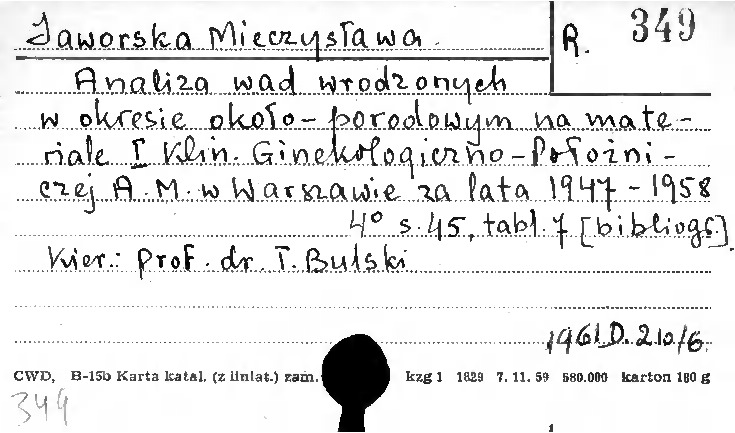 Jaworska Mieczysława.
R. 349
Analiza wad wrodzonych
w okresie około-porodowym na mate-
riale I Klin. Ginekologiczno-Położni-
czej A.M. w Warszawie za lata 1947-1958
4° s.45, tabl.7 [bibliogr.].
Kier.: prof. dr. T. Bulski
1961 D. 210/6.
CWD, B-15b Karta katal. (z liniat.) zam. kzg 1 1829 7. 11. 59 580.000 karton 180 g
349